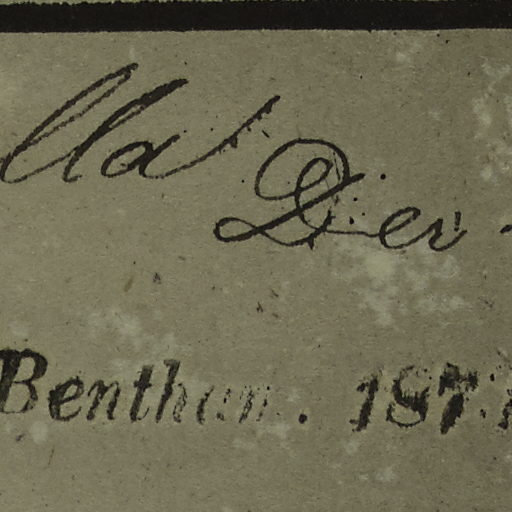 lla Der
Bentham. 187